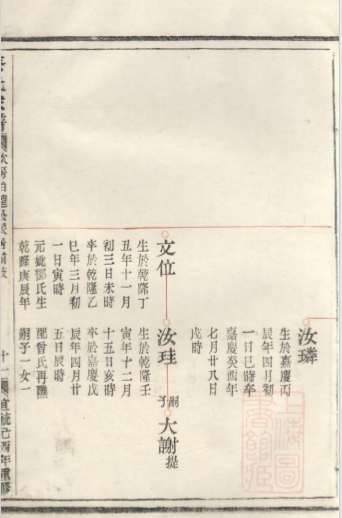 汝璘
生於嘉慶丙
辰年四月初
一日巳時卒
嘉慶癸酉年
七月廿八日
戌時
大謝提
嗣子
汝珪
生於乾隆壬
寅年十二月
十五日亥時
卒於嘉慶戊
辰年四月廿
五日辰時
配曾氏再醮
嗣子一女一
文位
生於乾隆丁
丑年十一月
初三日未時
卒於乾隆乙
巳年三月初
一日寅時
元妣鄧氏生
乾隆庚辰年
十一